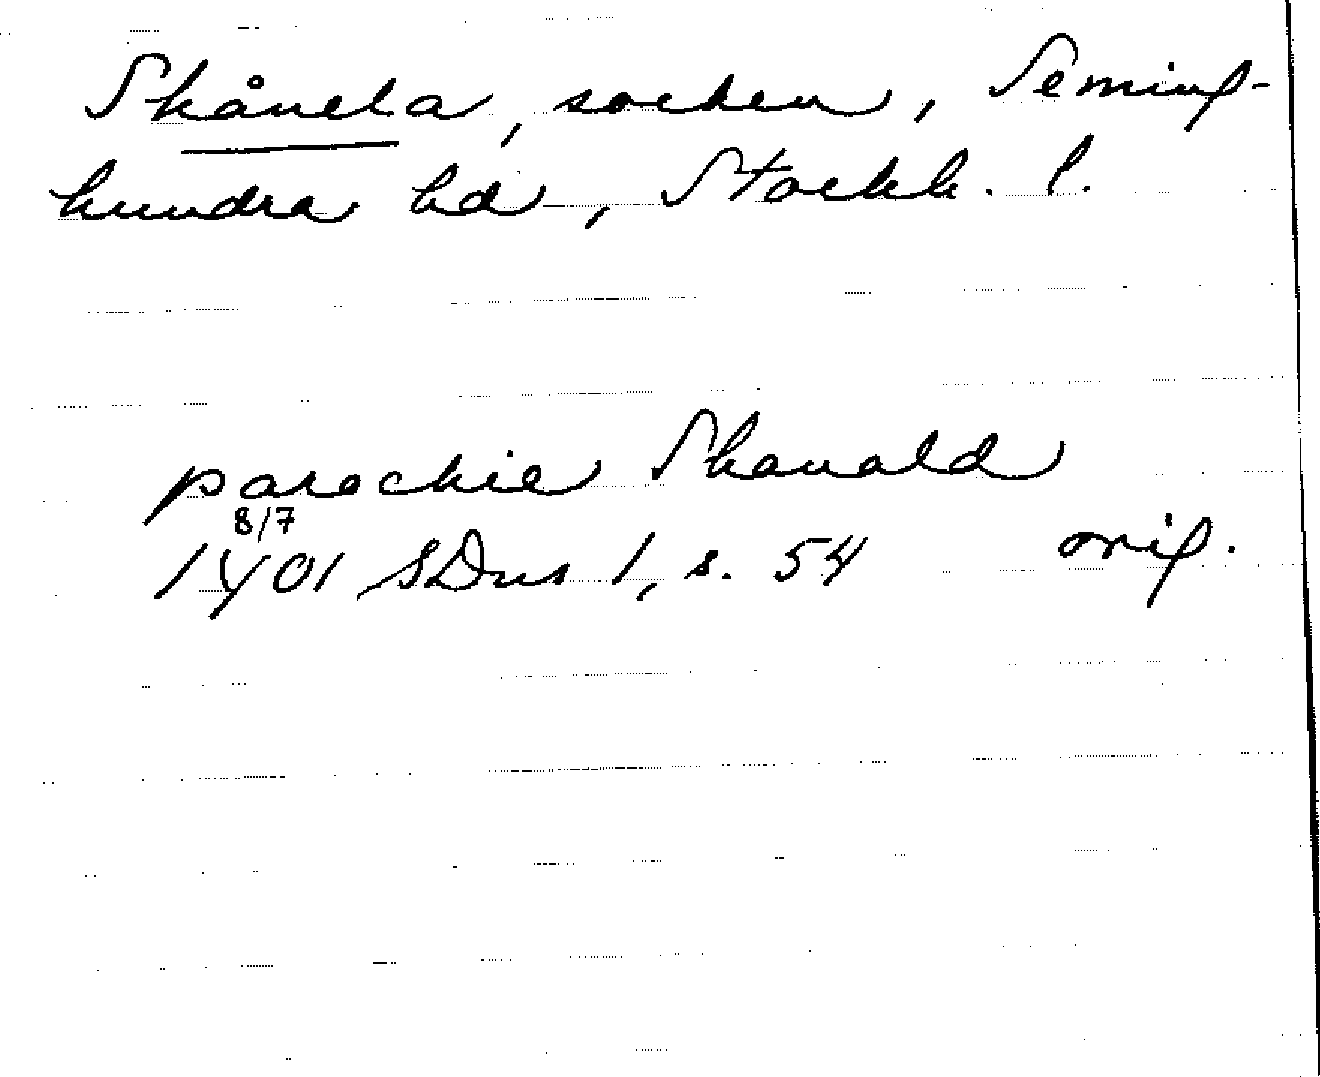 Skånela, socken, Seming-
hundra hd, Stockh. l.
parochie Skanald
8/7
1401 SDns 1, s. 54 orig.